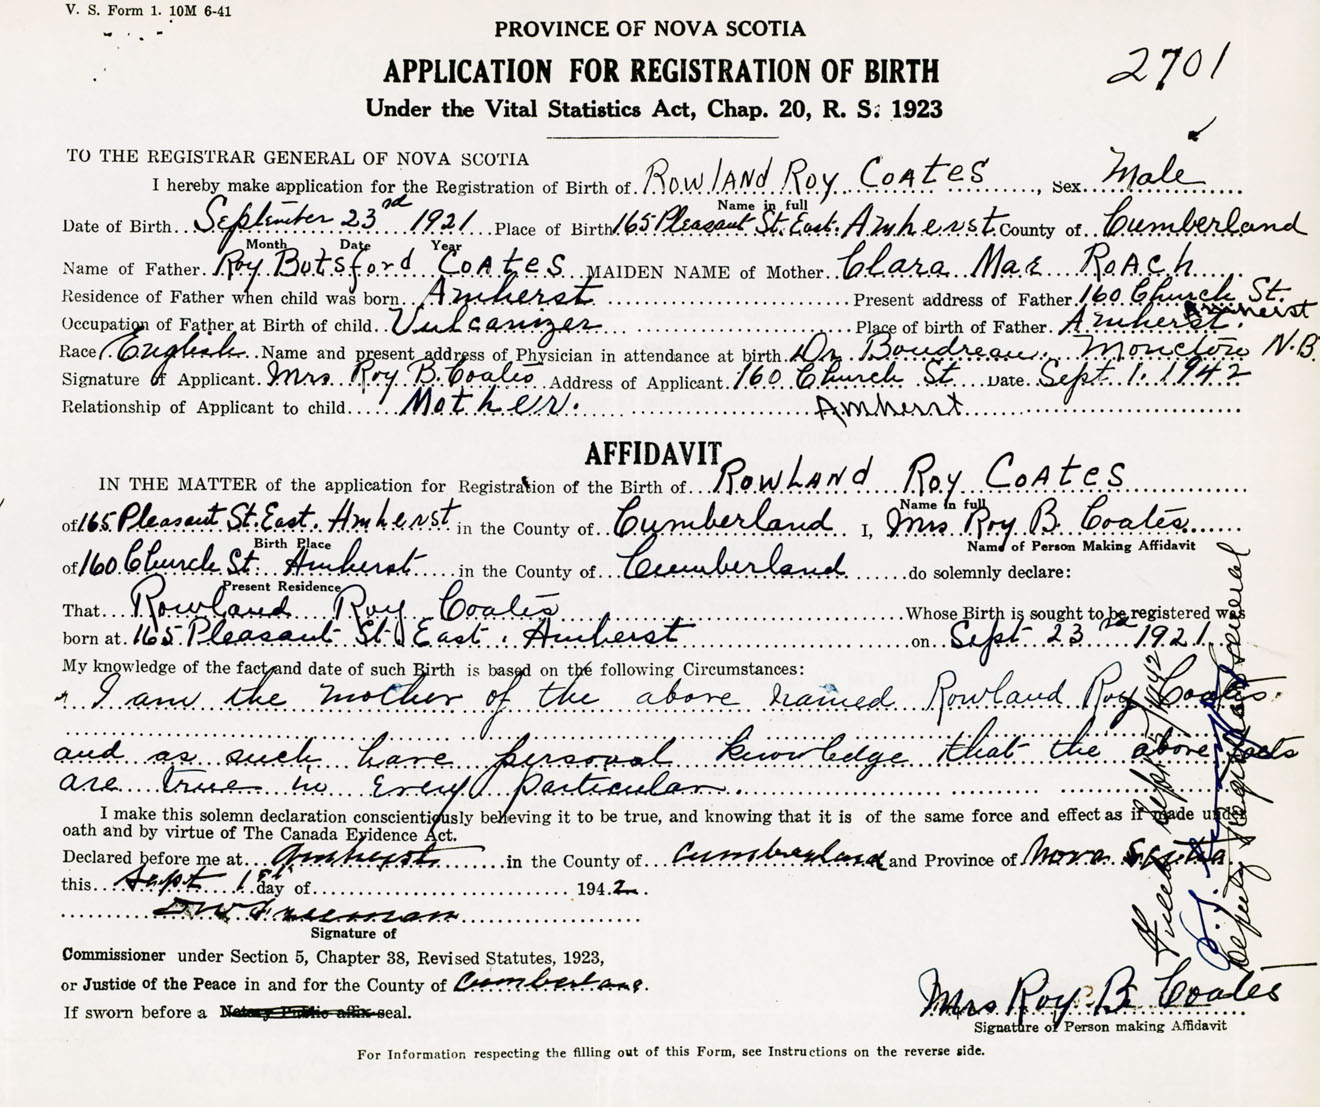 V. S. Form 1. 10M 6-41
PROVINCE OF NOVA SCOTIA
2701
APPLICATION FOR REGISTRATION OF BIRTH
Under the Vital Statistics Act, Chap. 20, R. S. 1923
TO THE REGISTRAR GENERAL OF NOVA SCOTIA
I hereby make application for the Registration of Birth of Rowland Roy Coates, Sex Male
Name in full
Date of Birth September 23rd 1921 Place of Birth 165 Pleasant St. East. Amherst. County of Cumberland
Month Date Year
Name of Father Roy Botsford Coates MAIDEN NAME of Mother Clara Mae Roach
Residence of Father when child was born Amherst Present address of Father 160 Church St. Amherst
Occupation of Father at Birth of child Vulcanizer Place of birth of Father Amherst.
Race English Name and present address of Physician in attendance at birth Dr. Boudreau. Moncton N.B.
Signature of Applicant Mrs Roy B. Coates Address of Applicant 160 Church St Date Sept. 1. 1942
Relationship of Applicant to child Mother. Amherst
AFFIDAVIT
IN THE MATTER of the application for Registration of the Birth of Rowland Roy Coates
Name in full
of 165 Pleasant St. East. Amherst in the County of Cumberland I, Mrs Roy B. Coates
Birth Place Name of Person Making Affidavit
of 160 Church St. Amherst in the County of Cumberland do solemnly declare:
Present Residence
That Rowland Roy Coates Whose Birth is sought to be registered was
born at 165 Pleasant St. East. Amherst on Sept 23rd 1921
My knowledge of the fact and date of such Birth is based on the following Circumstances:
I am the mother of the above named Rowland Roy Coates.
and as such have personal knowledge that the above facts
are true in every particular.
I make this solemn declaration conscientiously believing it to be true, and knowing that it is of the same force and effect as if made under
oath and by virtue of The Canada Evidence Act.
Declared before me at Amherst in the County of Cumberland and Province of Nova Scotia
this Sept 1st day of 1942
Freeman
Signature of
Commissioner under Section 5, Chapter 38, Revised Statutes, 1923,
or Justice of the Peace in and for the County of Cumberland.
If sworn before a Notary Public affix seal.
Mrs Roy B. Coates
Signature of Person making Affidavit
For Information respecting the filling out of this Form, see Instructions on the reverse side.
Filed Sept 5/1942
Deputy Registrar General